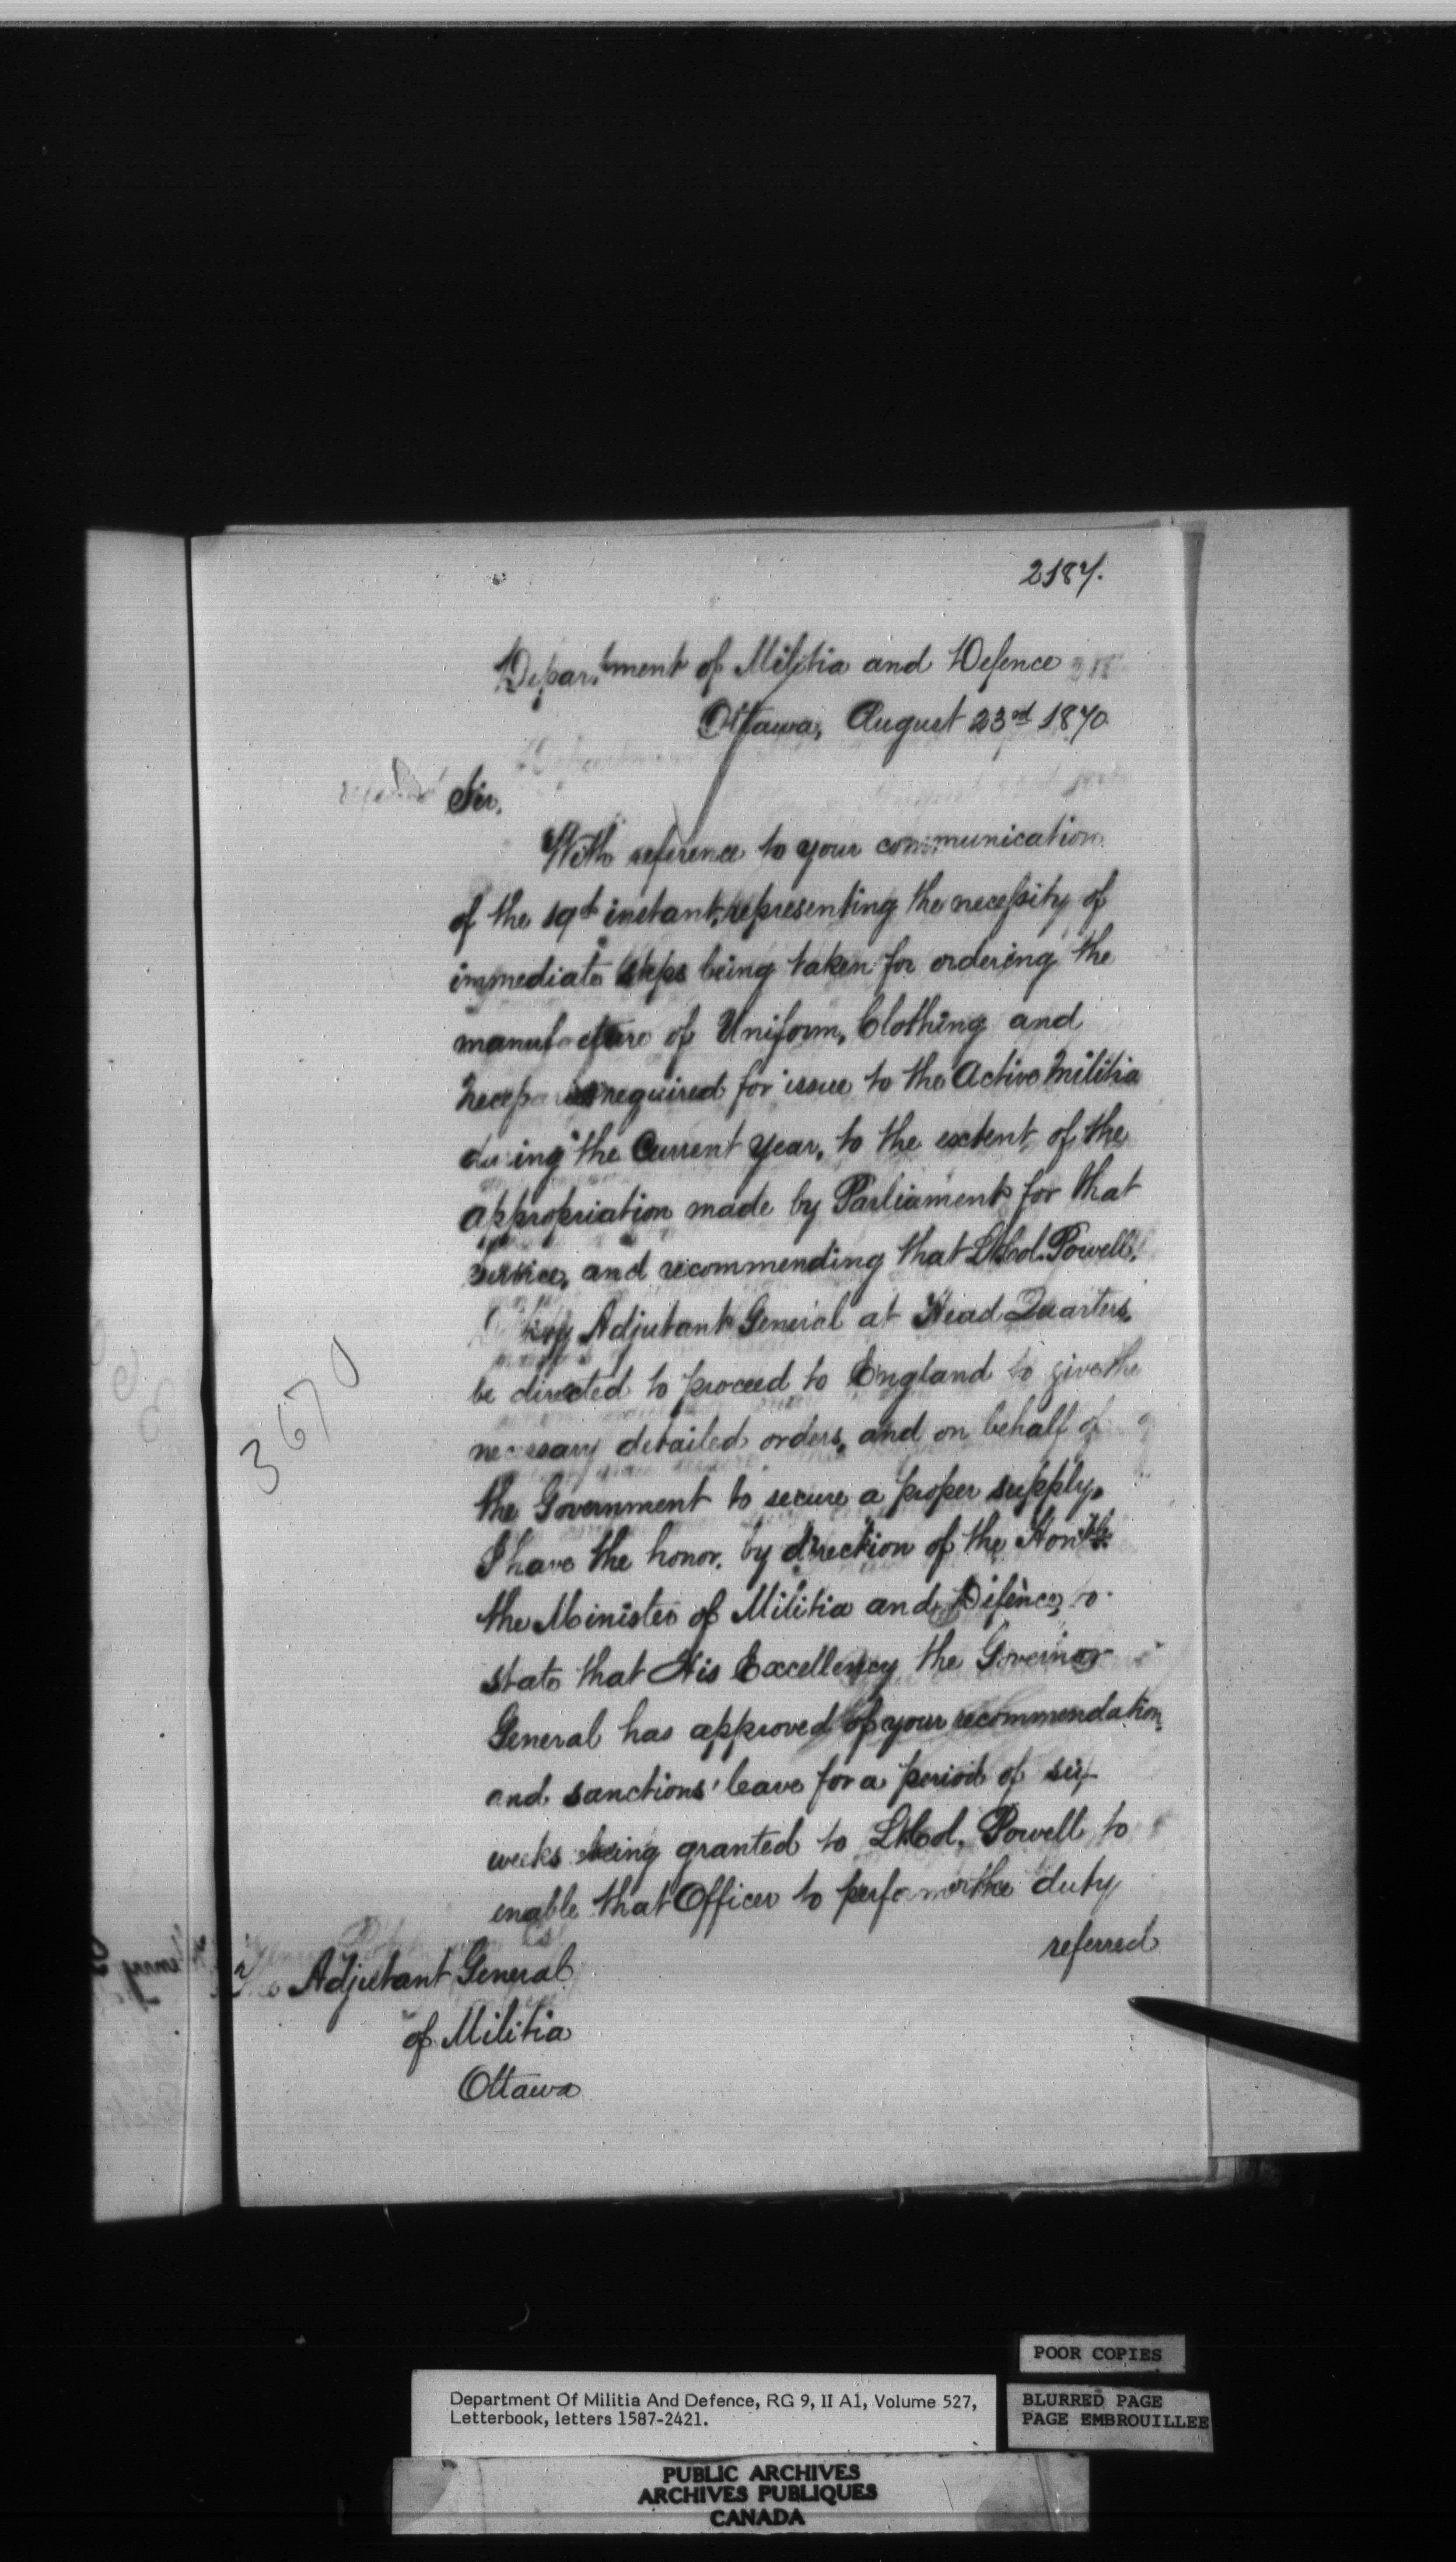 2187.
Department of Militia and Defence
Ottawa, August 23rd 1870
Sir,
With reference to your communication
of the 19th instant, representing the necessity of
immediate steps being taken for ordering the
manufacture of Uniform, Clothing and
necessaries required for issue to the Active Militia
during the Current year, to the extent of the
appropriation made by Parliament for that
service, and recommending that Lt Col. Powell,
Adjutant General at Head Quarters,
be directed to proceed to England to give the
necessary detailed orders, and on behalf of
the Government to secure a proper supply,
I have the honor, by direction of the Honble
the Minister of Militia and Defence, to
state that His Excellency the Governor
General has approved of your recommendation,
and sanctions leave for a period of six
weeks being granted to Lt Col. Powell to
enable that Officer to perform the duty
referred
The Adjutant General
of Militia
Ottawa
3670
POOR COPIES
BLURRED PAGE
PAGE EMBROUILLEE
Department Of Militia And Defence, RG 9, II A1, Volume 527,
Letterbook, letters 1587-2421.
PUBLIC ARCHIVES
ARCHIVES PUBLIQUES
CANADA